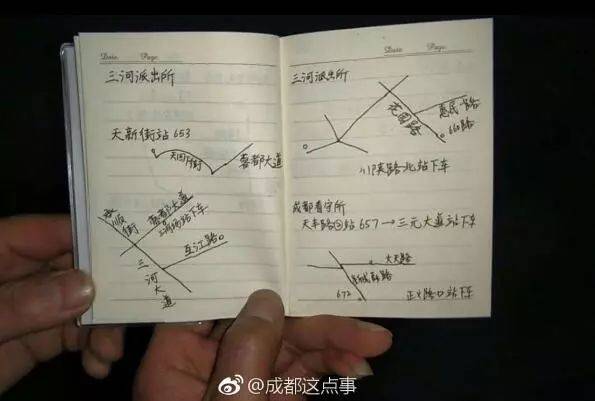 Date. Page.
三河派出所
天新街站 653
天回
街
蓉都大道
顺
街
蓉都大道
站下车
互江路
三
河
大
道
Date. Page.
三河派出所
花园路
惠民
路
660路
川陕路北站下车
成都看守所
天丰路
站 657→三元大道站下车
672
站下车
@成都这点事